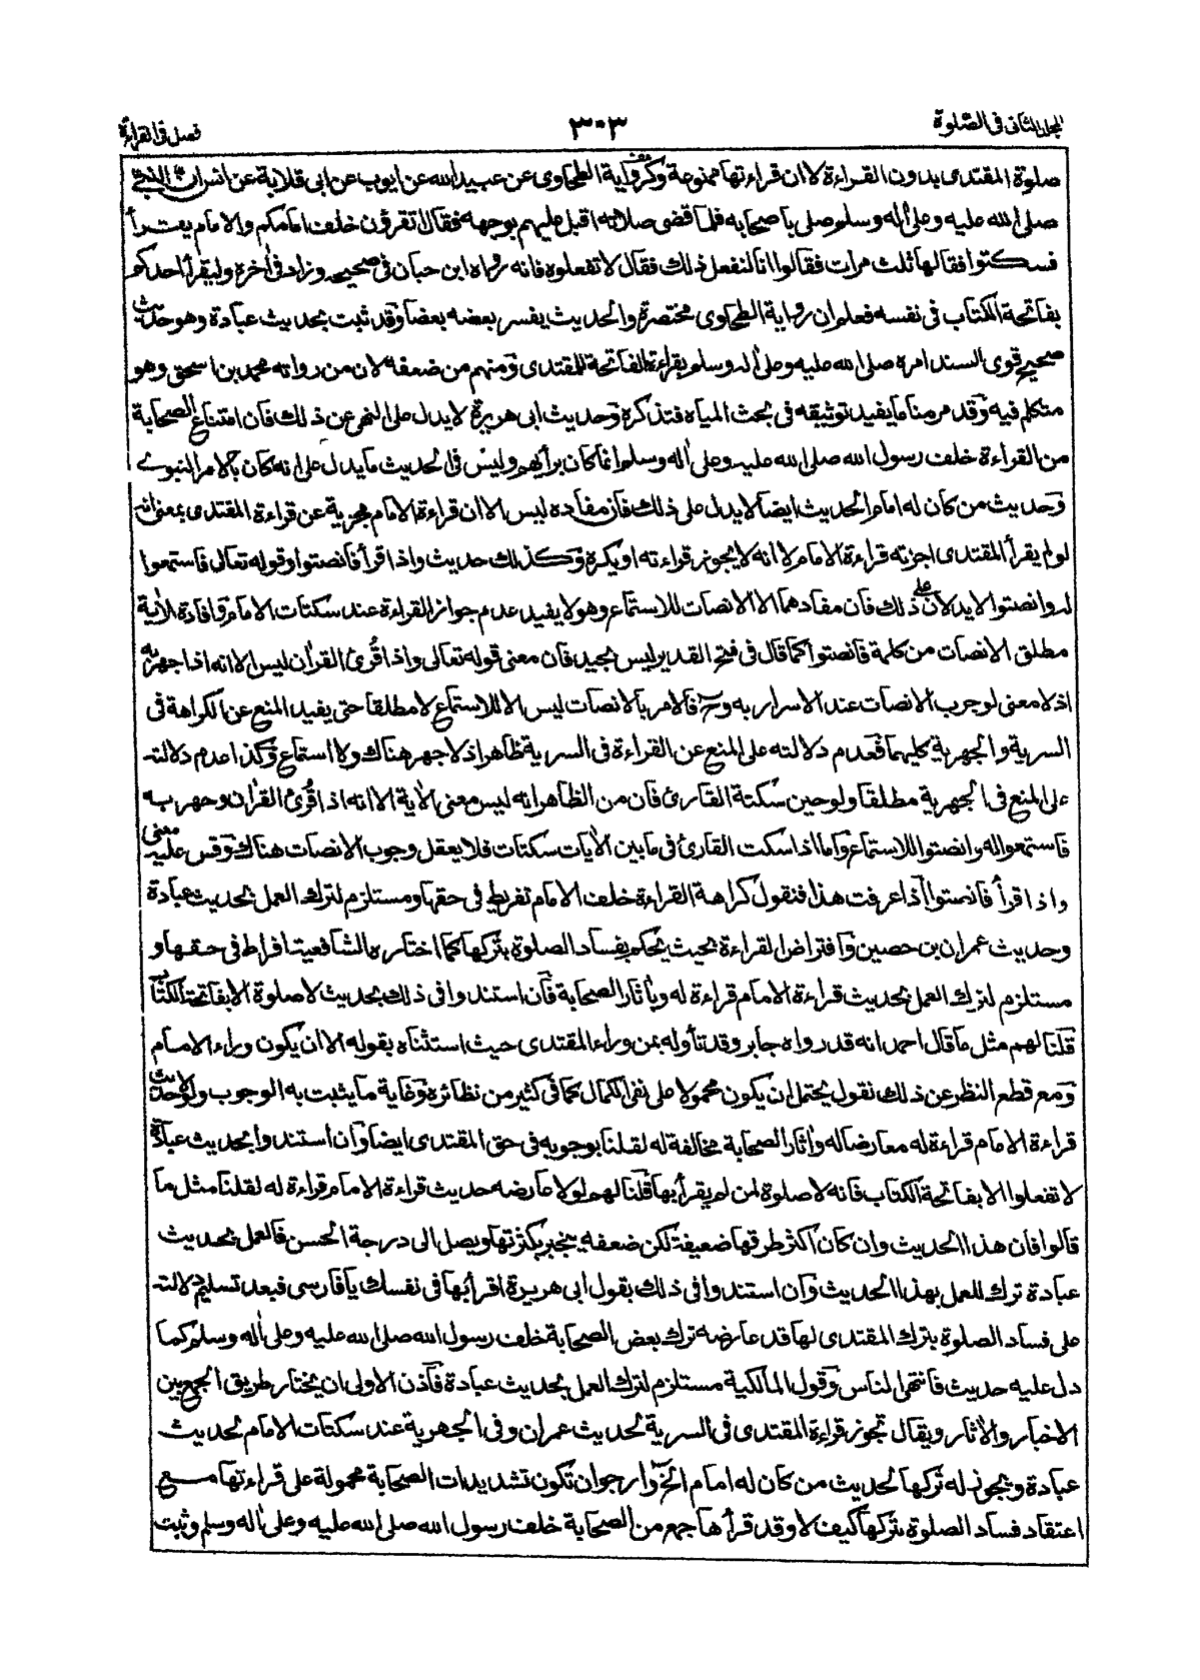 المجلد الثانى فى الصلوة
٣٠٣
فصل فى القراءة
صلوة المقتدى بدون القراءة لا ان قراءتها ممنوعة وكرواية الطحاوى عن عبيد الله عن ايوب عن ابى قلابة عن انس ان النبى
صلى الله عليه وعلى اله وسلم صلى باصحابه فلما قضى صلاته اقبل عليهم بوجهه فقال اتقرؤن خلف امامكم والامام يقرأ
فسكتوا فقالها ثلث مرات فقالوا انا لنفعل ذلك فقال لا تفعلوه فانه رواه ابن حبان فى صحيحه وزاد فى اخره وليقرأ احدكم
بفاتحة الكتاب فى نفسه فعلم ان رواية الطحاوى مختصرة والحديث يفسر بعضه بعضا وقد ثبت بحديث عبادة وهو حديث
صحيح قوى السند امره صلى الله عليه وعلى اله وسلم بقراءة الفاتحة للمقتدى ومنهم من ضعفه لان من رواته محمد بن اسحق وهو
متكلم فيه وقد مر منا ما يفيد توثيقه فى بحث المياه فتذكره وحديث ابى هريرة لا يدل على النهى عن ذلك فان امتناع الصحابة
من القراءة خلف رسول الله صلى الله عليه وعلى اله وسلم انما كان برأيهم وليس فى الحديث ما يدل على انه كان بالامر النبوى
وحديث من كان له امام الحديث ايضا لا يدل على ذلك فان مفاده ليس الا ان قراءة الامام مجزية عن قراءة المقتدى بمعنى انه
لو لم يقرأ المقتدى اجزته قراءة الامام لا انه لا يجوز قراءته او يكره وكذلك حديث واذا قرأ فانصتوا وقوله تعالى فاستمعوا
له وانصتوا لا يدلان على ذلك فان مفادهما الا الانصات للاستماع وهو لا يفيد عدم جواز القراءة عند سكتات الامام وافادة الاية
مطلق الانصات من كلمة فانصتوا كما قال فى فتح القدير ليس بجيد فان معنى قوله تعالى واذا قُرئ القران ليس الا انه اذا جهر به
اذ لا معنى لوجوب الانصات عند الاسرار به وح فالامر بالانصات ليس الا للاستماع لا مطلقا حتى يفيد المنع عن الكراهة فى
السرية والجهرية كليهما فعدم دلالته على المنع عن القراءة فى السرية ظاهر اذ لا جهر هناك ولا استماع وكذا عدم دلالته
على المنع فى الجهرية مطلقا ولو حين سكتة القارئ فان من الظاهر انه ليس معنى الاية الا انه اذا قُرئ القران وجهر به
فاستمعوا له وانصتوا للاستماع واما اذا سكت القارئ فى ما بين الايات سكتات فلا يعقل وجوب الانصات هناك وقس عليه معنى
واذا قرأ فانصتوا اذا عرفت هذا فنقول كراهة القراءة خلف الامام تفريط فى حقها ومستلزم لترك العمل بحديث عبادة
وحديث عمران بن حصين وافتراض القراءة بحيث يحكم بفساد الصلوة بتركها كما اختاره الشافعية افراط فى حقها و
مستلزم لترك العمل بحديث قراءة الامام قراءة له وباثار الصحابة فان استندوا فى ذلك بحديث لا صلوة الا بفاتحة الكتاب
قلنا لهم مثل ما قال احمد انه قد رواه جابر وقد تأوله بمن وراء المقتدى حيث استثناه بقوله الا ان يكون وراء الامام
ومع قطع النظر عن ذلك نقول يحتمل ان يكون محمولا على نفى الكمال كما فى كثير من نظائره وغاية ما يثبت به الوجوب ولولا حديث
قراءة الامام قراءة له معارضا له واثار الصحابة مخالفة له لقلنا بوجوبه فى حق المقتدى ايضا وان استندوا بحديث عبادة
لا تفعلوا الا بفاتحة الكتاب فانه لا صلوة لمن لم يقرأ بها قلنا لهم لولا عارضه حديث قراءة الامام قراءة له لقلنا مثل ما
قالوا فان هذا الحديث وان كان اكثر طرقها ضعيفة لكن ضعفه ينجبر بكثرتها ويصل الى درجة الحسن فالعمل بحديث
عبادة ترك للعمل بهذا الحديث وان استندوا فى ذلك بقول ابى هريرة اقرأ بها فى نفسك يا فارسى فبعد تسليم دلالته
على فساد الصلوة بترك المقتدى لها قد عارضه ترك بعض الصحابة خلف رسول الله صلى الله عليه وعلى اله وسلم كما
دل عليه حديث فانتهى الناس وقول المالكية مستلزم لترك العمل بحديث عبادة فاذن الاولى ان يختار طريق الجمع بين
الاخبار والاثار ويقال تجوز قراءة المقتدى فى السرية لحديث عمران وفى الجهرية عند سكتات الامام لحديث
عبادة ويجوز له تركها لحديث من كان له امام الخ وارجو ان تكون تشديدات الصحابة محمولة على قراءتها مع
اعتقاد فساد الصلوة بتركها كيف لا وقد قرأها جمع من الصحابة خلف رسول الله صلى الله عليه وعلى اله وسلم وثبت